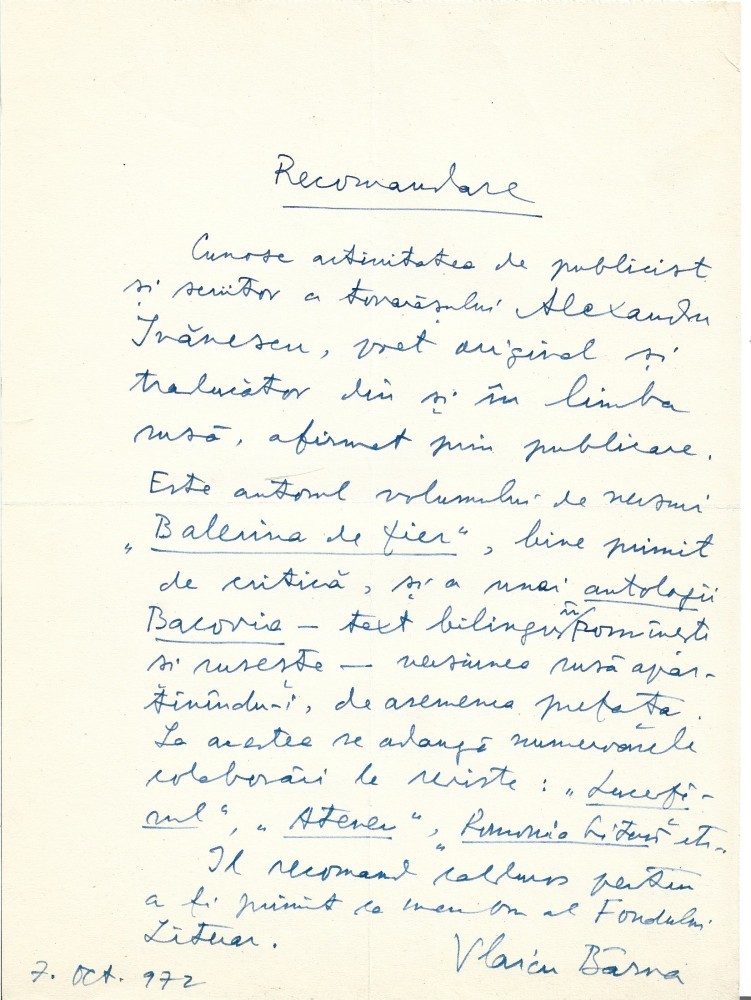 Recomandare
Cunosc activitatea de publicist
și scriitor a tovarășului Alexandru
Ivănescu, poet original și
traducător din și în limba
rusă, afirmat prin publicare.
Este autorul volumului de versuri
„Balerina de fier", bine primit
de critică, și a unei antologii
Bacovia — text bilingv în romînește
si rusește — versiunea rusă apar-
ținîndu-i, de asemenea prefața.
La acestea se adaugă numeroasele
colaborări la reviste: „Luceafă-
rul", „Ateneu", „Romania Literară" etc.
Il recomand călduros pentru
a fi primit ca membru al Fondului
Literar.
Vlaicu Bârna
7. Oct. 972